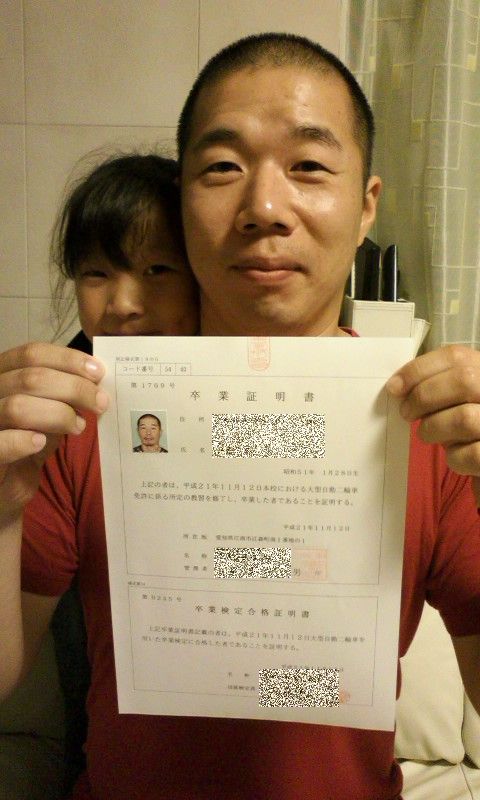 別記様式第1号の5
コード番号 54 03
第1769号
卒業証明書
住所
氏名
昭和51年 1月28日生
上記の者は、平成21年11月12日本校における大型自動二輪車
免許に係る所定の教習を修了し、卒業した者であることを証明する。
平成21年11月12日
所在地 愛知県江南市江森町南1番地の1
名称
管理者 男
様式第31
第9235号
卒業検定合格証明書
上記卒業証明書記載の者は、平成21年11月12日大型自動二輪車を
用いた卒業検定に合格した者であることを証明する。
名称
技能検定員